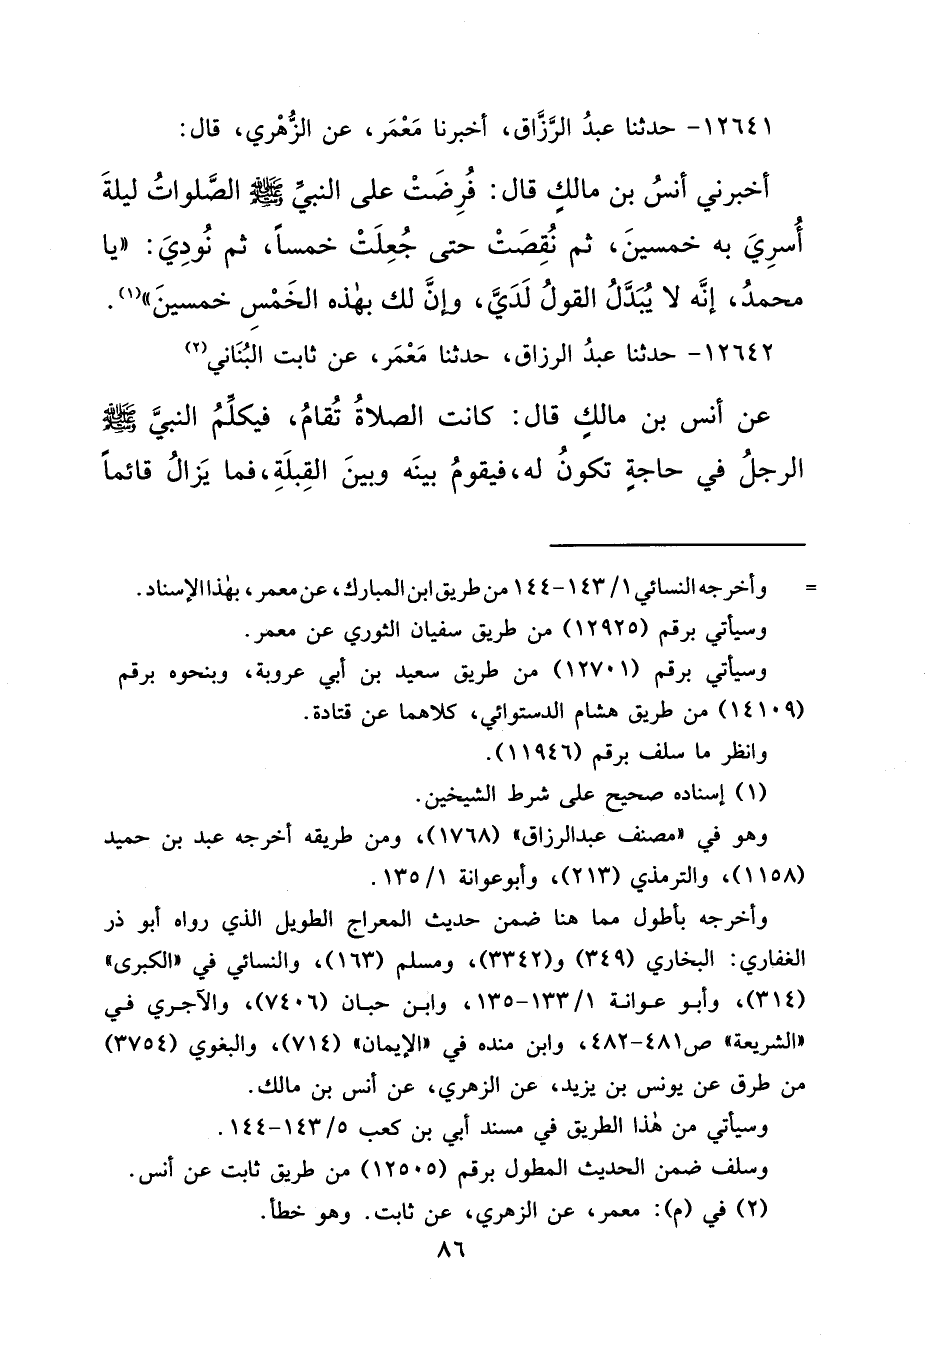 ١٢٦٤١- حدثنا عبدُ الرَّزَّاق، أخبرنا مَعْمَر، عن الزُّهْري، قال:
أخبرني أنسُ بن مالكٍ قال: فُرِضَتْ على النبيِّ ﷺ الصَّلواتُ ليلةَ
أُسرِيَ به خمسينَ، ثم نُقِصَتْ حتى جُعِلَتْ خمساً، ثم نُودِيَ: «يا
محمدُ، إنَّه لا يُبَدَّلُ القولُ لَدَيَّ، وإنَّ لك بهٰذه الخَمْسِ خمسينَ»(١).
١٢٦٤٢- حدثنا عبدُ الرزاق، حدثنا مَعْمَر، عن ثابت البُنَاني(٢)
عن أنس بن مالكٍ قال: كانت الصلاةُ تُقامُ، فيكلِّمُ النبيَّ ﷺ
الرجلُ في حاجةٍ تكونُ له، فيقومُ بينَه وبينَ القِبلَةِ، فما يَزالُ قائماً
= وأخرجه النسائي ١/ ١٤٣-١٤٤ من طريق ابن المبارك، عن معمر، بهٰذا الإسناد.
وسيأتي برقم (١٢٩٢٥) من طريق سفيان الثوري عن معمر.
وسيأتي برقم (١٢٧٠١) من طريق سعيد بن أبي عروبة، وبنحوه برقم
(١٤١٠٩) من طريق هشام الدستوائي، كلاهما عن قتادة.
وانظر ما سلف برقم (١١٩٤٦).
(١) إسناده صحيح على شرط الشيخين.
وهو في «مصنف عبدالرزاق» (١٧٦٨)، ومن طريقه أخرجه عبد بن حميد
(١١٥٨)، والترمذي (٢١٣)، وأبوعوانة ١/ ١٣٥.
وأخرجه بأطول مما هنا ضمن حديث المعراج الطويل الذي رواه أبو ذر
الغفاري: البخاري (٣٤٩) و(٣٣٤٢)، ومسلم (١٦٣)، والنسائي في «الكبرى»
(٣١٤)، وأبو عوانة ١/ ١٣٣-١٣٥، وابن حبان (٧٤٠٦)، والآجري في
«الشريعة» ص٤٨١-٤٨٢، وابن منده في «الإيمان» (٧١٤)، والبغوي (٣٧٥٤)
من طرق عن يونس بن يزيد، عن الزهري، عن أنس بن مالك.
وسيأتي من هٰذا الطريق في مسند أبي بن كعب ٥/ ١٤٣-١٤٤.
وسلف ضمن الحديث المطول برقم (١٢٥٠٥) من طريق ثابت عن أنس.
(٢) في (م): معمر، عن الزهري، عن ثابت. وهو خطأ.
٨٦